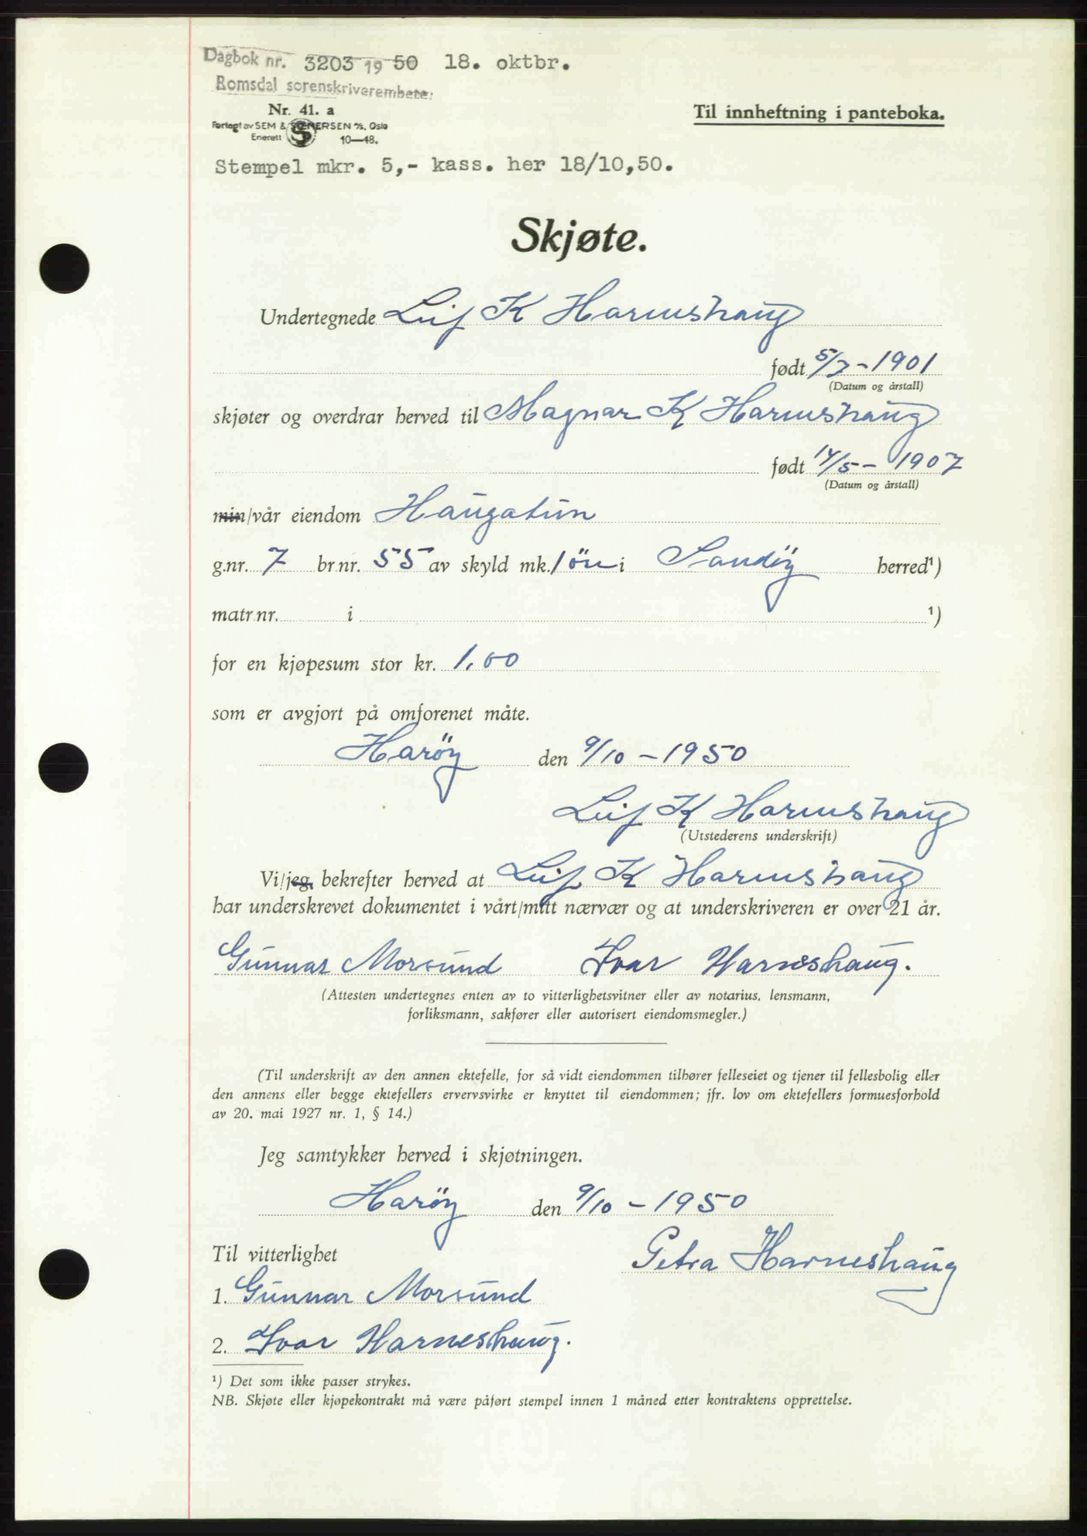 Dagbok nr. 3203 19 50 18. oktbr.
Romsdal sorenskriverembete.
Nr. 41. a
Til innheftning i panteboka.
Forlagt av SEM & STENERSEN A/S, Oslo
Enerett S 10—48.
Stempel mkr. 5,- kass. her 18/10,50.
Skjøte.
Undertegnede Leif K Harneshaug
født 5/3 - 1901
(Datum og årstall)
skjøter og overdrar herved til Magnar K Harneshaug
født 14/5 - 1907
(Datum og årstall)
min/vår eiendom Haugatun
g.nr. 7 br.nr. 55 av skyld mk. 1 øre i Sandöy herred¹)
matr.nr. i ¹)
for en kjøpesum stor kr. 1,00
som er avgjort på omforenet måte.
Haröy den 9/10 - 1950
Leif K Harneshaug
(Utstederens underskrift)
Vi/jeg, bekrefter herved at Leif K Harneshaug
har underskrevet dokumentet i vårt/mitt nærvær og at underskriveren er over 21 år.
Gunnar Morsund Ivar Harneshaug.
(Attesten undertegnes enten av to vitterlighetsvitner eller av notarius, lensmann,
forliksmann, sakfører eller autorisert eiendomsmegler.)
(Til underskrift av den annen ektefelle, for så vidt eiendommen tilhører felleseiet og tjener til fellesbolig eller
den annens eller begge ektefellers ervervsvirke er knyttet til eiendommen; jfr. lov om ektefellers formuesforhold
av 20. mai 1927 nr. 1, § 14.)
Jeg samtykker herved i skjøtningen.
Haröy den 9/10 - 1950
Til vitterlighet
Petra Harneshaug
1. Gunnar Morsund
2. Ivar Harneshaug.
¹) Det som ikke passer strykes.
NB. Skjøte eller kjøpekontrakt må være påført stempel innen 1 måned etter kontraktens opprettelse.